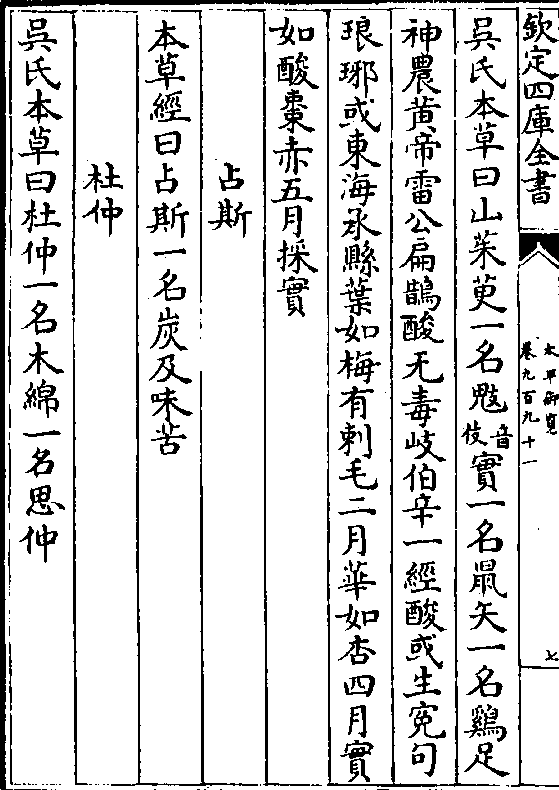 欽定四庫全書
太平御覽
卷九百九十一
七
吳氏本草曰山茱萸一名鬾音伎實一名鼠矢一名鷄足
神農黄帝雷公扁鵲酸无毒岐伯辛一經酸或生寃句
琅琊或東海承縣葉如梅有刺毛二月華如杏四月實
如酸棗赤五月採實
占斯
本草經曰占斯一名炭及味苦
杜仲
吳氏本草曰杜仲一名木綿一名思仲